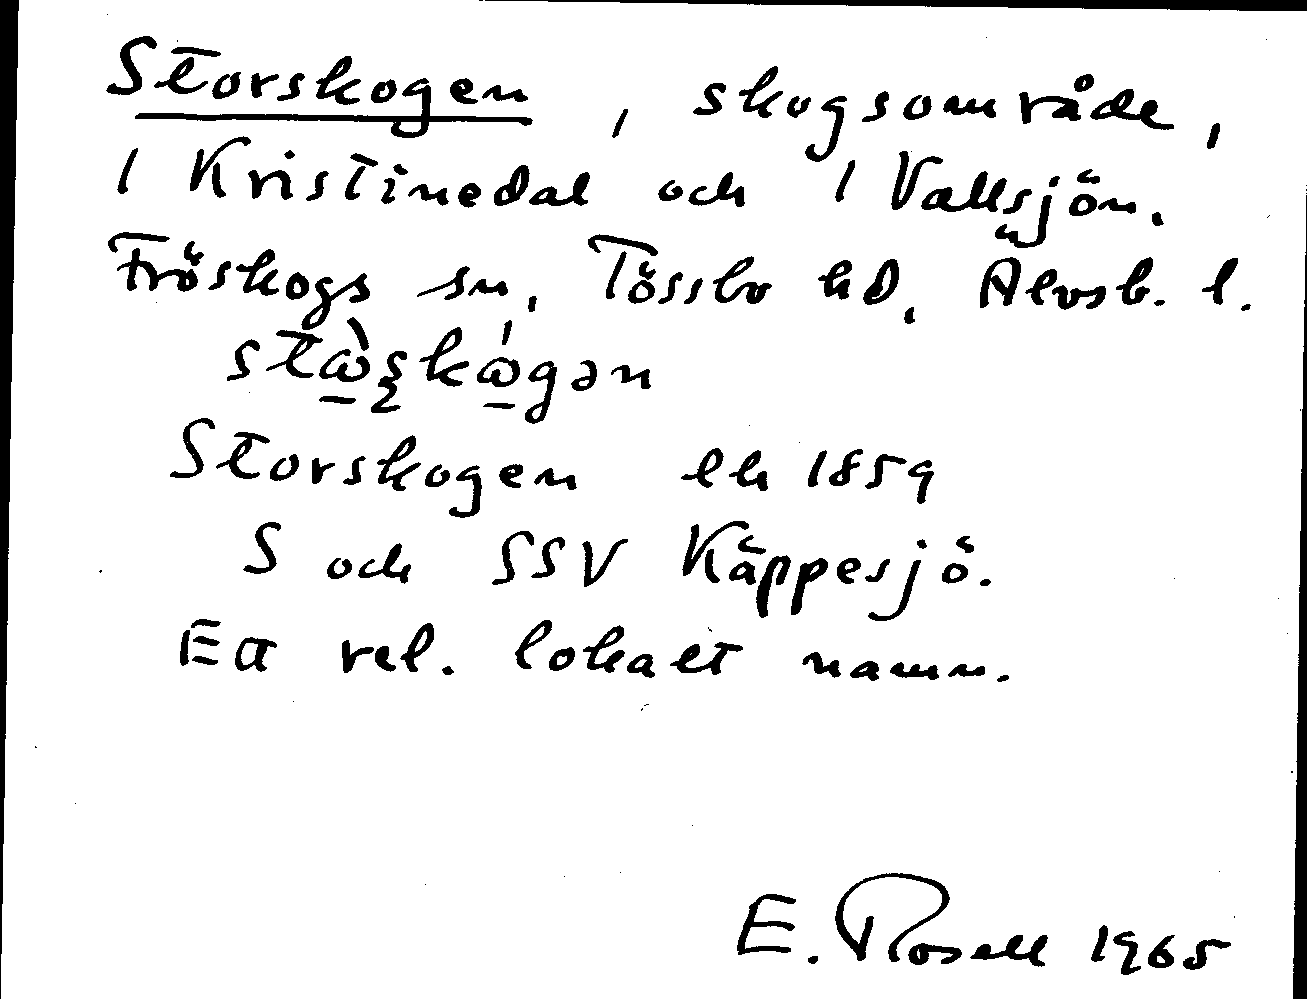 Storskogen, skogsområde,
1 Kristinedal och 1 Vallsjön.
Fröskogs sn, Tössbo hd, Älvsb. l.
stὼ̲ʂkώ̲gən
Storskogen ek 1859
S och SSV Käppesjö.
Ett rel. lokalt namn.
E. Rosell 1965